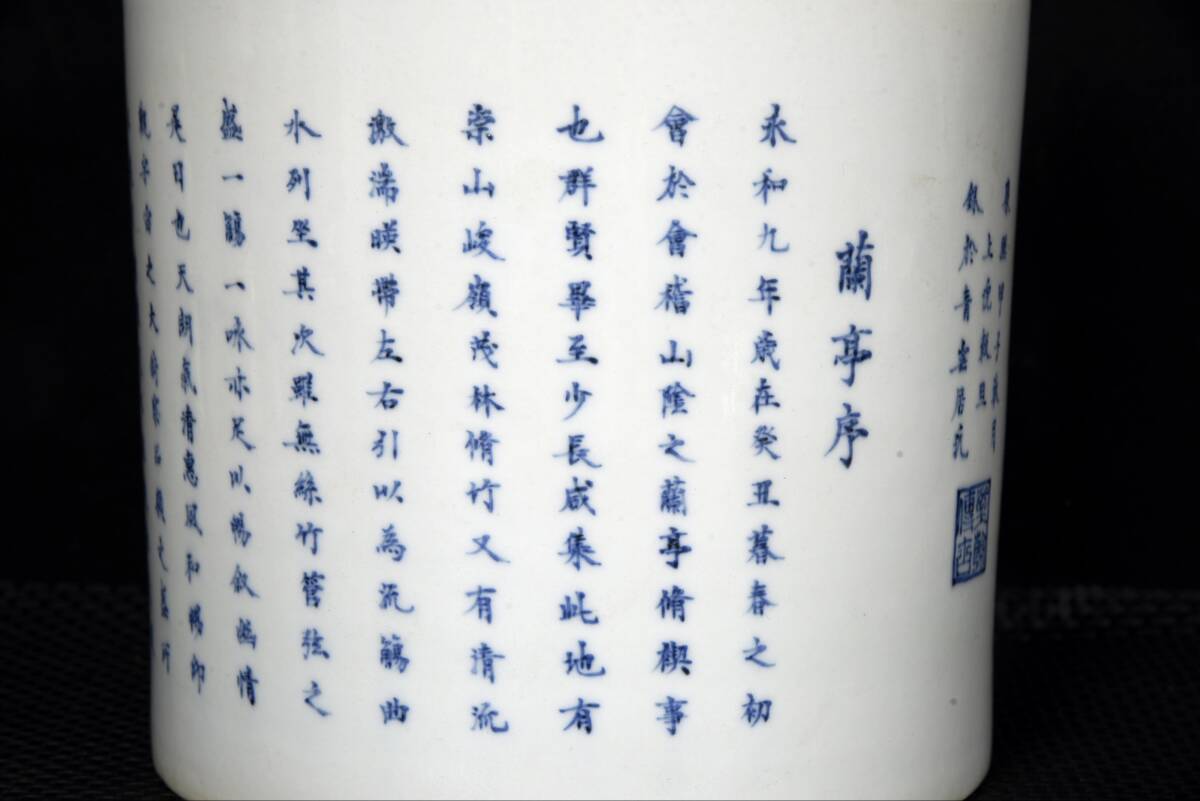 蘭亭序
永和九年歲在癸丑暮春之初
會於會稽山陰之蘭亭脩禊事
也群賢畢至少長咸集此地有
崇山峻嶺茂林脩竹又有清流
激湍暎帶左右引以為流觴曲
水列坐其次雖無絲竹管弦之
盛一觴一咏亦足以暢叙幽情
是日也天朗氣清惠風和暢仰
觀宇宙之大俯察品類之盛所
甲子
上浣
於青雲居